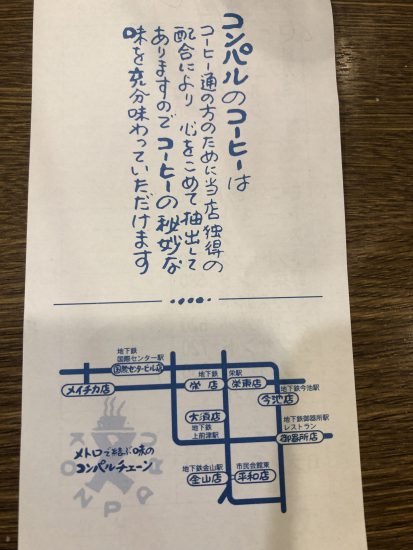 コンパルのコーヒーは
コーヒー通の方のために当店独得の
配合により 心をこめて抽出して
ありますので コーヒーの秘妙な
味を充分味わっていただけます
地下鉄
国際センター駅
国際センタービル店
メイチカ店
地下鉄
栄店
栄駅
栄東店
地下鉄今池駅
今池店
大須店
地下鉄
上前津駅
地下鉄御器所駅
レストラン
御器所店
地下鉄金山駅
金山店
市民会館東
平和店
メトロで結ぶ味の
コンパルチェーン
KONPAL